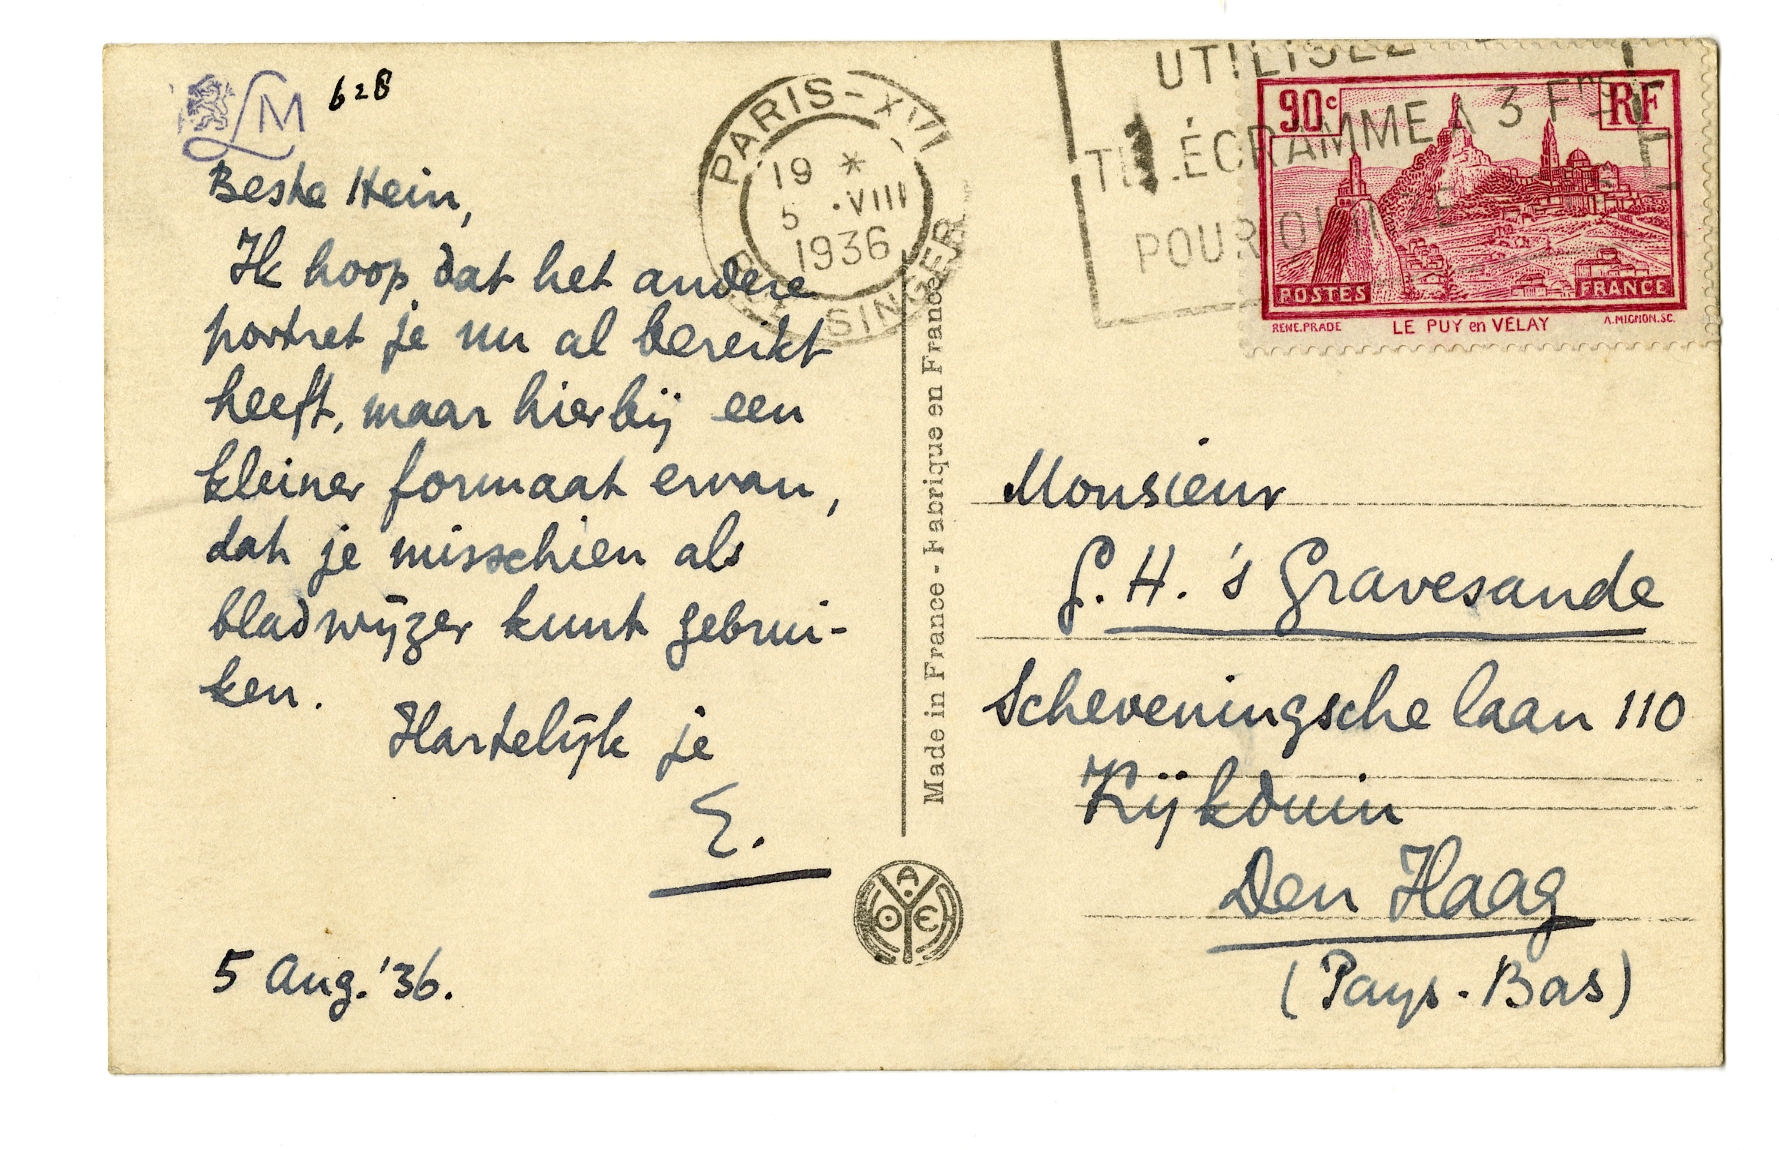 LM 628
Beste Hein,
Ik hoop dat het andere
portret je nu al bereikt
heeft, maar hierbij een
kleiner formaat ervan,
dat je misschien als
bladwijzer kunt gebrui-
ken.
Hartelijk je
E.
5 Aug. '36.
PARIS-XVI
19 *
5 .VIII
1936
SINGER
Made in France - Fabrique en France
UTILISEZ
TÉLÉGRAMME A 3 Frs
POUR
90c
RF
POSTES
FRANCE
RENE.PRADE
LE PUY en VÉLAY
A.MIGNON.SC.
Monsieur
G. H. 's Gravesande
Scheveningsche laan 110
Kijkduin
Den Haag
(Pays-Bas)